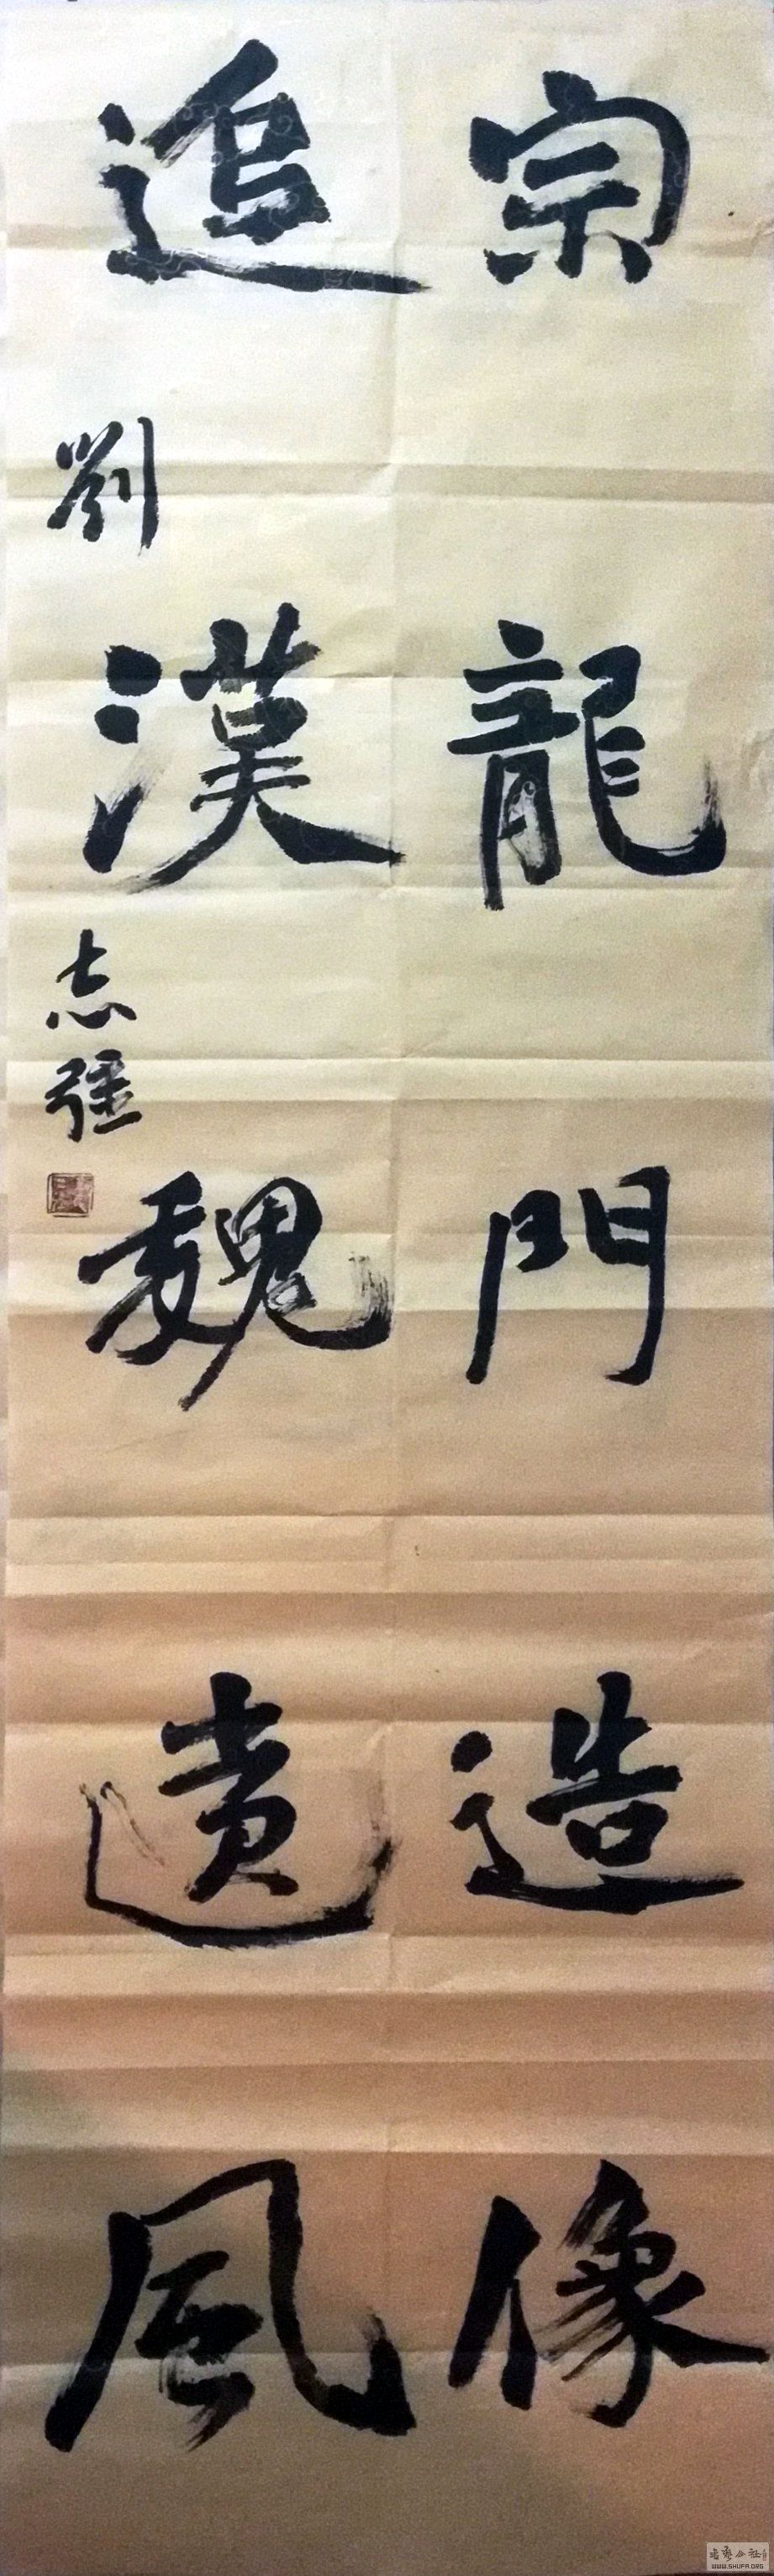 宗龍門造像
追漢魏遺風
劉志强
书艺公社
WWW.SHUFA.ORG